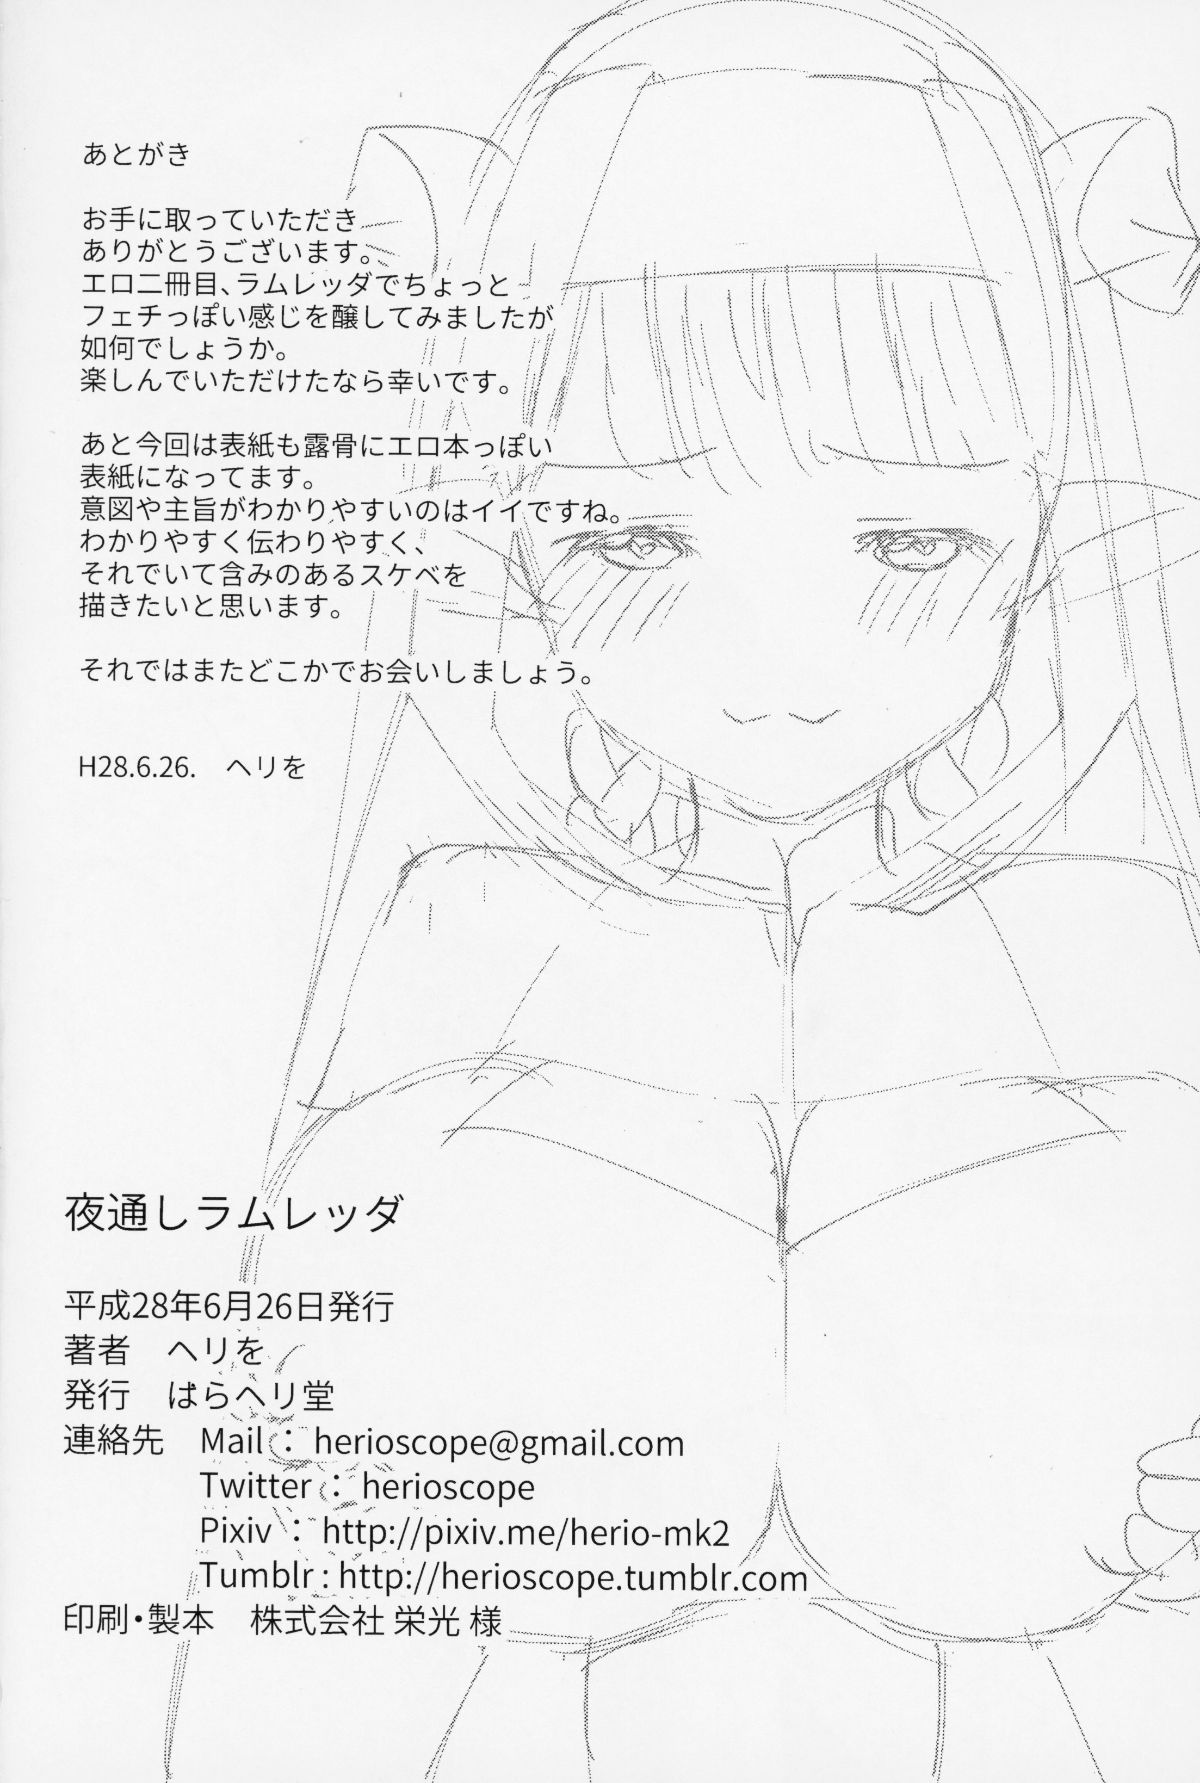 あとがき
お手に取っていただき
ありがとうございます。
エロ二冊目、ラムレッダでちょっと
フェチっぽい感じを醸してみましたが
如何でしょうか。
楽しんでいただけたなら幸いです。
あと今回は表紙も露骨にエロ本っぽい
表紙になってます。
意図や主旨がわかりやすいのはイイですね。
わかりやすく伝わりやすく、
それでいて含みのあるスケベを
描きたいと思います。
それではまたどこかでお会いしましょう。
H28.6.26.　ヘリを
夜通しラムレッダ
平成28年6月26日発行
著者　ヘリを
発行　はらヘリ堂
連絡先　Mail： herioscope@gmail.com
Twitter： herioscope
Pixiv： http://pixiv.me/herio-mk2
Tumblr：http://herioscope.tumblr.com
印刷・製本　株式会社 栄光 様